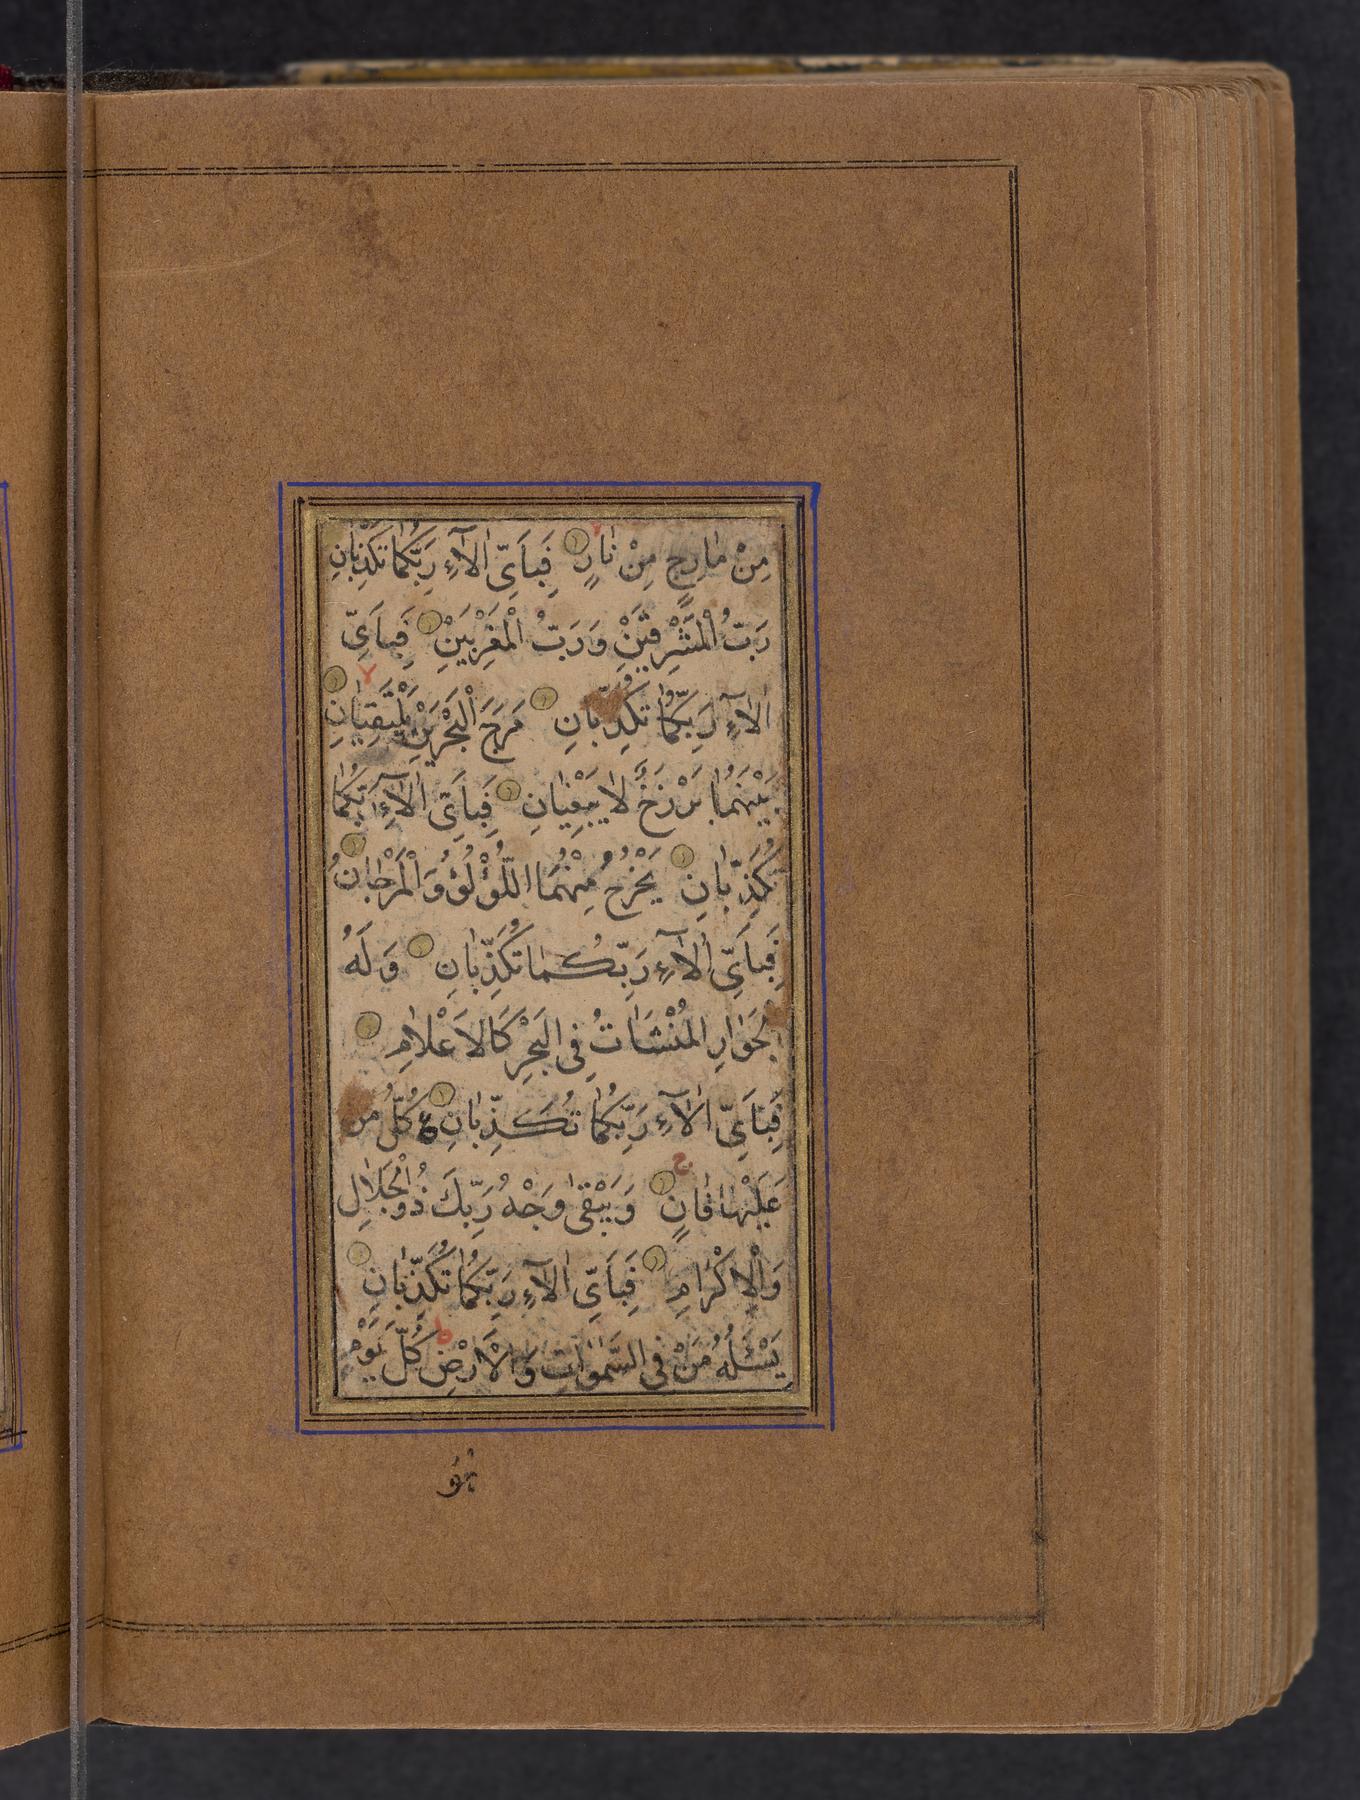 مِنْ مَارِجٍ مِنْ نَارٍ فَبِاَىِّ اٰلَاۤءِ رَبِّكُمَا تُكَذِّبَانِ
رَبُّ الْمَشْرِقَيْنِ وَرَبُّ الْمَغْرِبَيْنِ فَبِاَىِّ
اٰلَاۤءِ رَبِّكُمَا تُكَذِّبَانِ مَرَجَ الْبَحْرَيْنِ يَلْتَقِيَانِ
بَيْنَهُمَا بَرْزَخٌ لَا يَبْغِيَانِ فَبِاَىِّ اٰلَاۤءِ رَبِّكُمَا
تُكَذِّبَانِ يَخْرُجُ مِنْهُمَا اللُّؤْلُؤُ وَالْمَرْجَانُ
فَبِاَىِّ اٰلَاۤءِ رَبِّكُمَا تُكَذِّبَانِ وَلَهُ
الْجَوَارِ الْمُنْشَاٰتُ فِى الْبَحْرِ كَالْاَعْلَامِ
فَبِاَىِّ اٰلَاۤءِ رَبِّكُمَا تُكَذِّبَانِ ع كُلُّ مَنْ
عَلَيْهَا فَانٍ وَيَبْقٰى وَجْهُ رَبِّكَ ذُو الْجَلَالِ
وَالْاِكْرَامِ فَبِاَىِّ اٰلَاۤءِ رَبِّكُمَا تُكَذِّبَانِ
يَسْئَلُهُ مَنْ فِى السَّمٰوَاتِ وَالْاَرْضِ كُلَّ يَوْمٍ
هُوَ